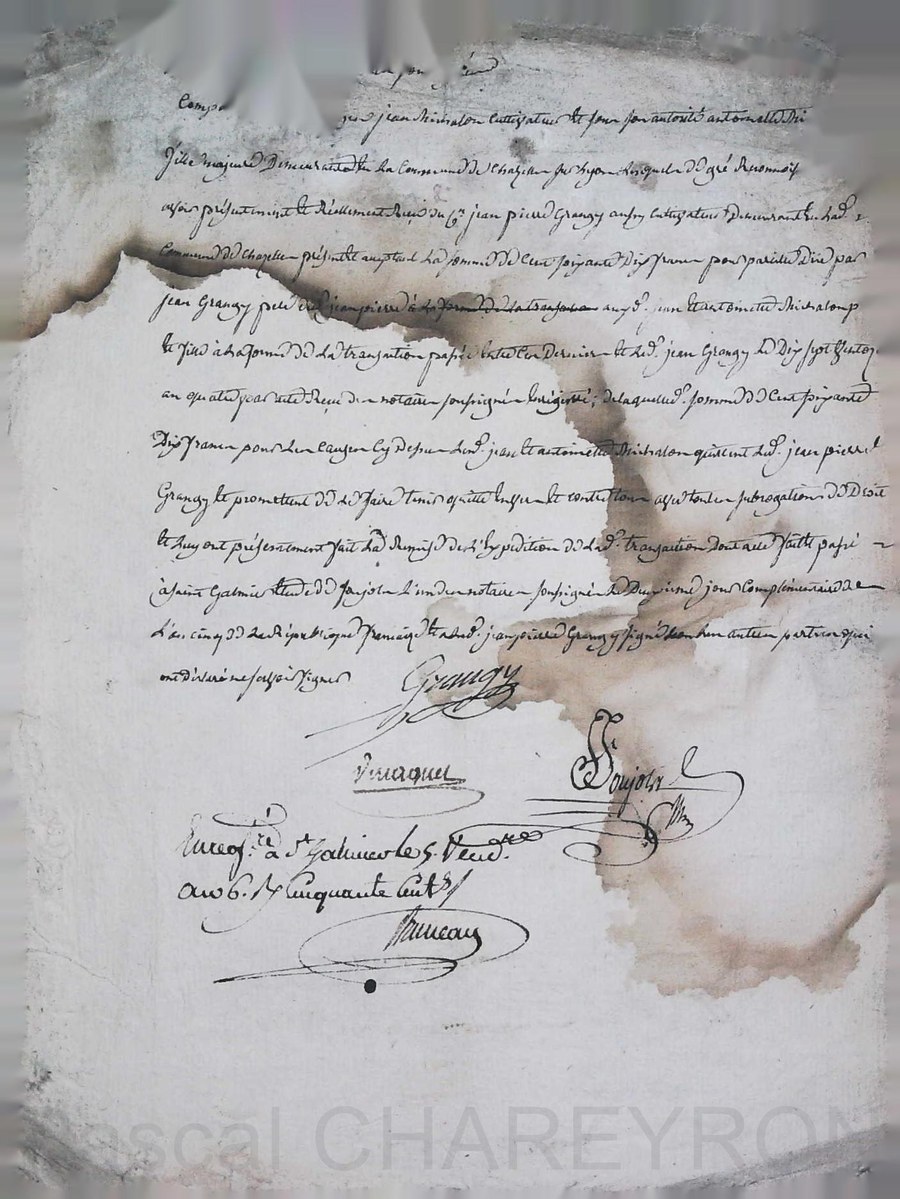 Comp
jean Michalon cultivateur et sous son autorité antoinette Mi
fille majeure Demeurant en La Commune de Chazelles sur Lyon Lesquels de gré Reconnois
avoir présentement et Réellement Reçu du Cn. jean pierre Grangy aussy cultivateur Demeurant en Lad.
Commune de Chazelles présent et acceptant La somme de Cent soixante Dix francs pour pareille Due par
jean Grangy frere dud. jean pierre à La forme de La transaction auxd. jean et antoinette Michalon p
et fille à La forme de La transaction passée entre Ces Derniers et Led. jean Grangy Le Dix sept
an quatre pardevant Reçue des notaires soussignés enregistré; de laquelle d. somme de Cent soixante
Dix francs pour Les Causes Cy dessus Lesd. jean et antoinette Michalon quittent Led. jean pierre
Grangy et promettent de Le faire tenir quitte Envers et contre tous avec toutes subrogations de Droit
et Luy ont présentement fait La Remise de L'Expedition de Lad. transaction Dont acte fait et passé
à Saint Galmier Etude de Poujola L'un des notaires soussignés Le Deuxieme jour Complementaire de
L'an cinq de La République française et a Led. jean pierre Grangy signé non Les autres parties qui
ont déclaré ne savoir signer
Grangy
Poujola
Enregré. à St Galmier le 5. Vendre.
an 6. R cinquante cent.
Bruneau
Pascal CHAREYRON